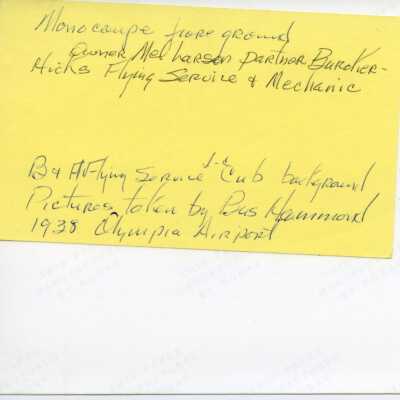 Monocoupe fore ground
Owner Mel Larson partner Burdker-
Hicks Flying Service & Mechanic
B & H Flying Service J-2 Cub background
Pictures taken by Bus Hammond
1938 Olympia Airport